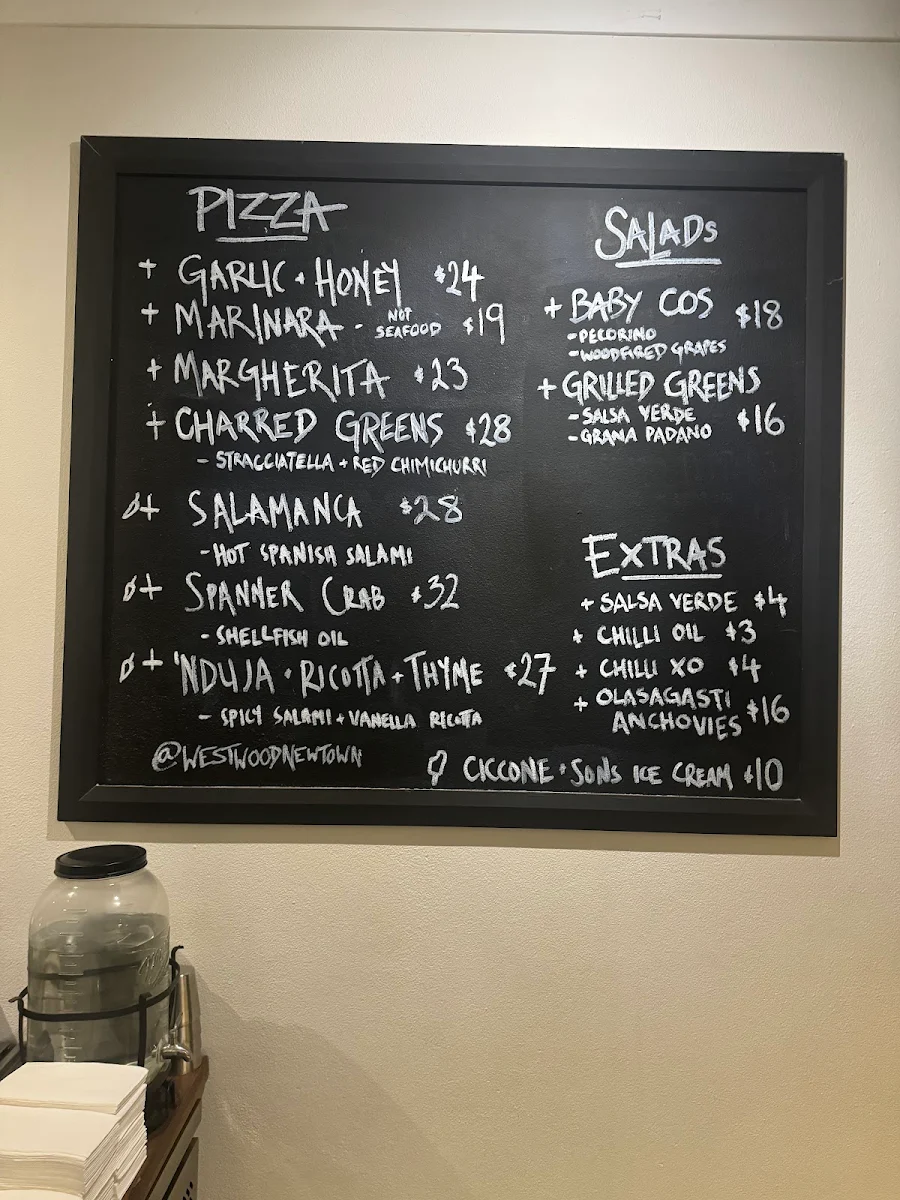 PIZZA
+ GARLIC + HONEY $24
+ MARINARA - NOT SEAFOOD $19
+ MARGHERITA $23
+ CHARRED GREENS $28
- STRACCIATELLA + RED CHIMICHURRI
+ SALAMANCA $28
- HOT SPANISH SALAMI
+ SPANNER CRAB $32
- SHELLFISH OIL
+ 'NDUJA + RICOTTA + THYME $27
- SPICY SALAMI + VANELLA RICOTTA
@WESTWOODNEWTOWN
SALADS
+ BABY COS $18
- PECORINO
- WOODFIRED GRAPES
+ GRILLED GREENS
- SALSA VERDE $16
- GRANA PADANO
EXTRAS
+ SALSA VERDE $4
+ CHILLI OIL $3
+ CHILLI XO $4
+ OLASAGASTI
ANCHOVIES $16
CICCONE + SONS ICE CREAM $10